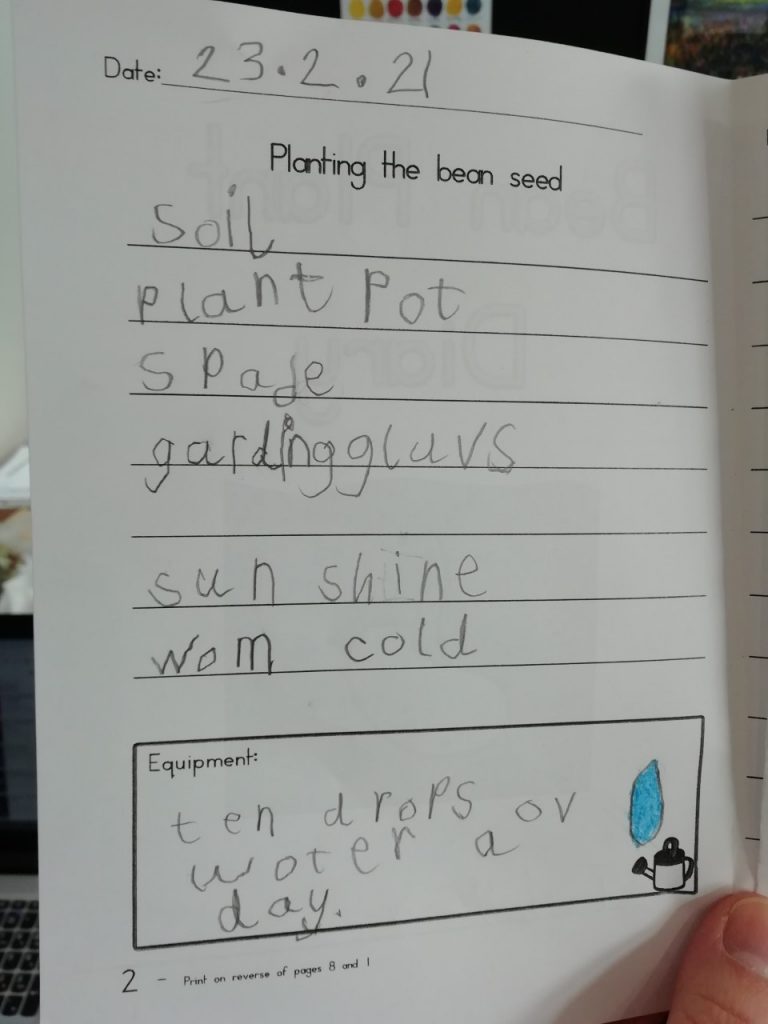 Date: 23.2.21
Planting the bean seed
soil
plant pot
spade
gardinggluvs
sun shine
wom cold
Equipment:
ten drops ov
woter a
day.
2 - Print on reverse of pages 8 and 1